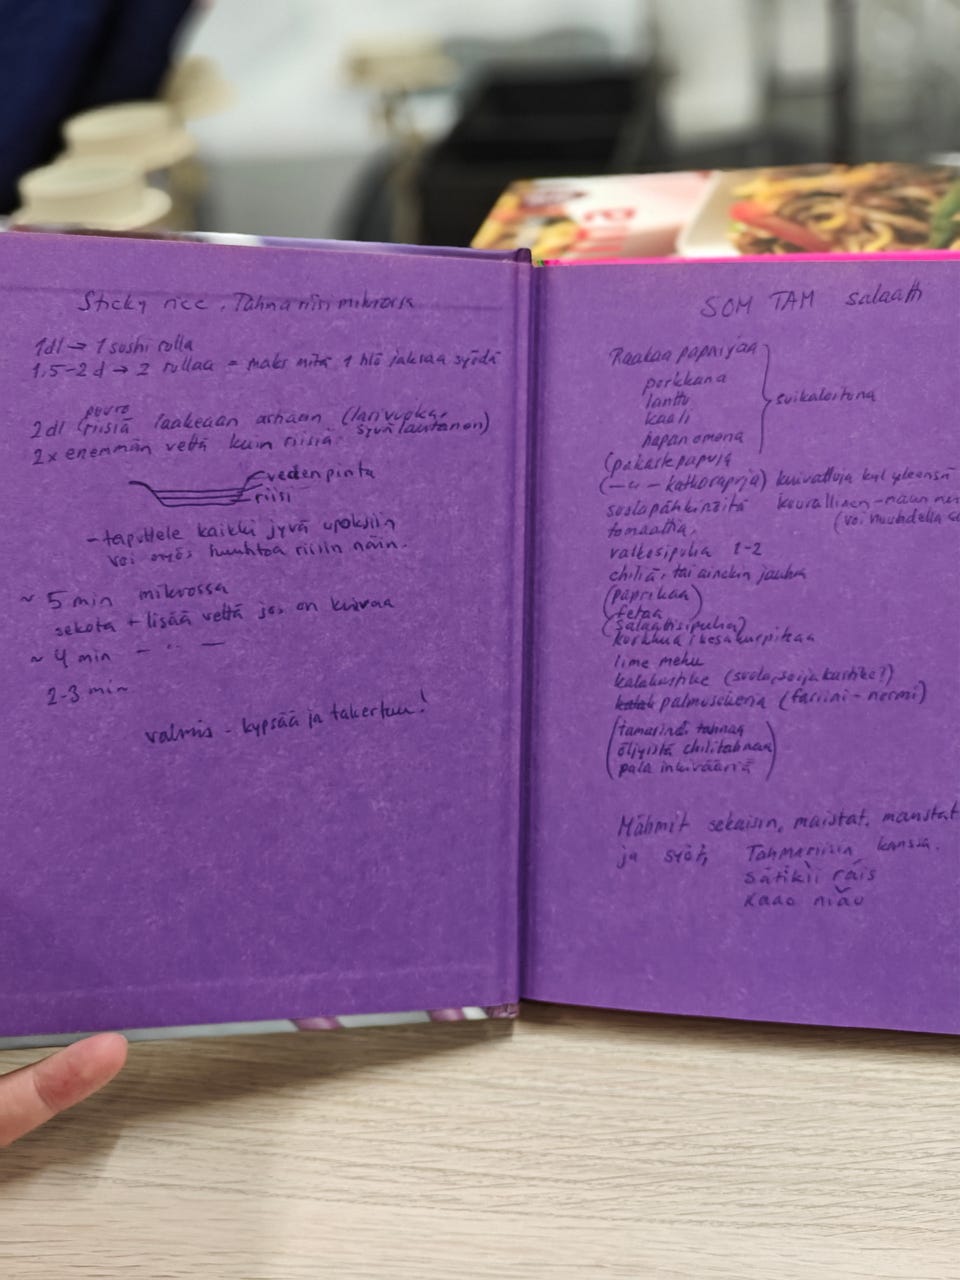 Sticky rice, Tahmariisi mikrossa
1dl → 1 sushi rolla
1,5-2 d → 2 rollaa = maks mitä 1 hlö jaksaa syödä
puuro
2dl (riisiä laakeaan astiaan (lasivuoka,
syvä lautanen)
2x enemmän vettä kuin riisiä
vedenpinta
riisi
- taputtele kaikki jyvä upoksiin
voi myös huuhtoa riisin näin.
~ 5 min mikrossa
sekota + lisää vettä jos on kuivaa
~ 4 min - " -
2-3 min
valmis - kypsää ja takertuu!
SOM TAM salaatti
Raakaa papaijaa
porkkana
lanttu
kaali
hapan omena
suikaloituna
(pakastepapuja
(-"- katkarapuja) kuivattuja kyl yleensä
suolapähkinöitä kourallinen
(voi huuhdella
tomaattia,
valkosipulia 1-2
chiliä, tai ainekin jauhia
(paprikaa)
(fetaa)
(salaattisipulia)
kurkkua, kesäkurpitsaa
lime mehu
kalakastike (suola, soijakastike?)
kalak palmusokeria (fariini - normi)
(tamarindi tahnaa
öljyistä chilitahnaa
pala inkivääriä)
Mähmit sekaisin, maistat, maustat
ja syöt, Tahmariisin kanssa.
Sátikii ráis
Kaao niǎo